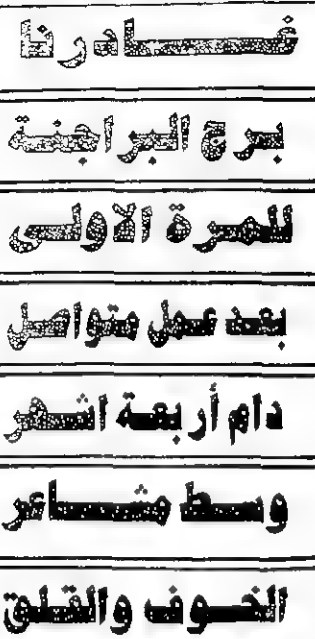 غادرنا
برج البراجنة
للمرة الاولى
بعد عمل متواصل
دام أربعة اشهر
وسط مشاعر
الخوف والقلق